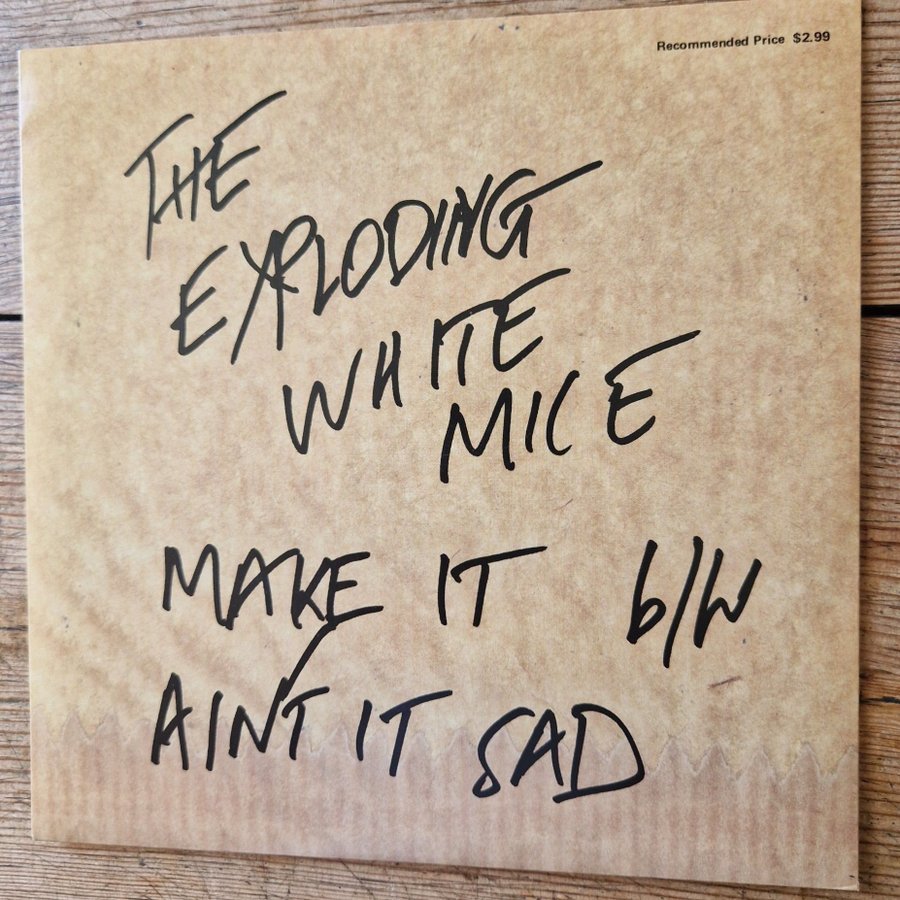 Recommended Price $2.99
THE
EXPLODING
WHITE
MICE
MAKE IT b/W
AIN'T IT SAD